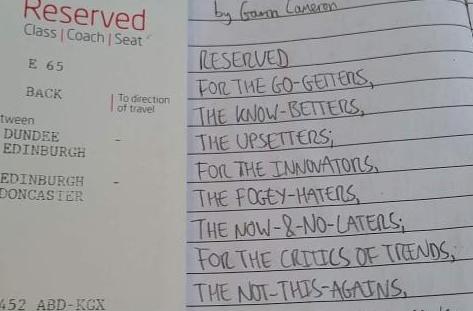 Reserved
Class | Coach | Seat
E 65
BACK
To direction
of travel
tween
DUNDEE -
EDINBURGH
EDINBURGH -
DONCASTER
452 ABD-KGX
by Gavin Cameron
RESERVED
FOR THE GO-GETTERS,
THE KNOW-BETTERS,
THE UPSETTERS;
FOR THE INNOVATORS,
THE FOGEY-HATERS,
THE NOW-&-NO-LATERS;
FOR THE CRITICS OF TRENDS,
THE NOT-THIS-AGAINS,